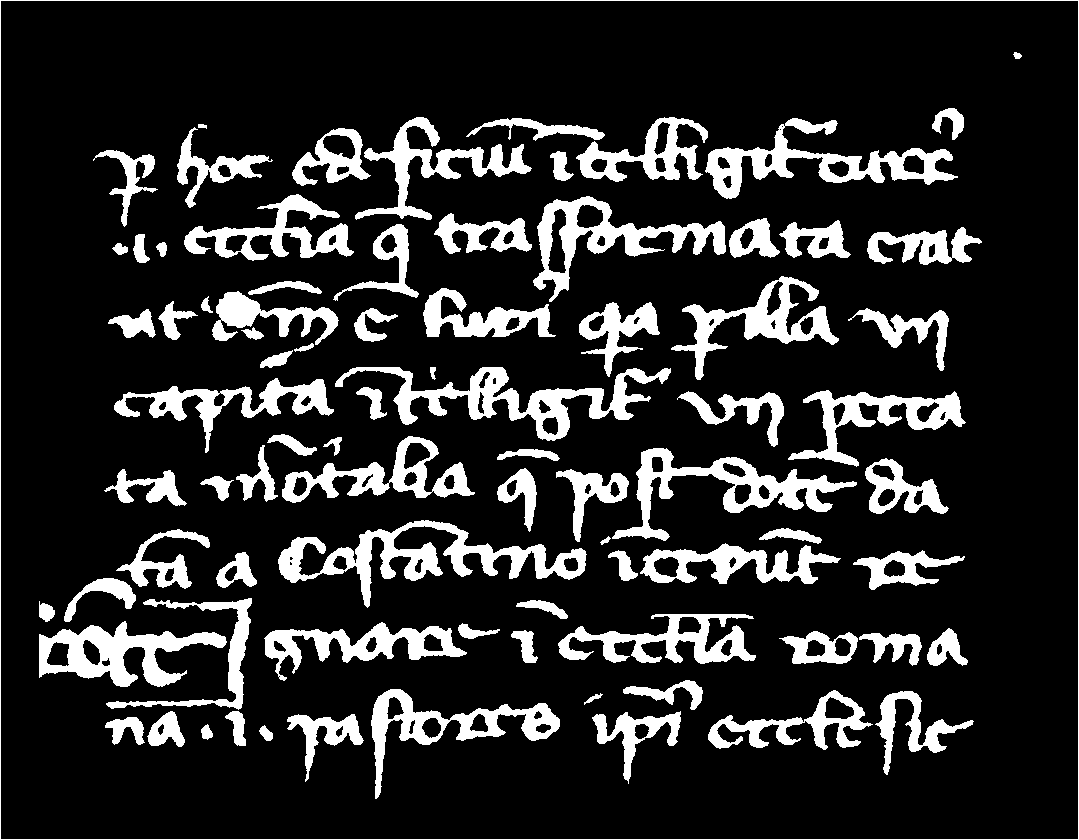 ꝑ hoc edificiū ītelligit᷑ curr᷑
.i. ecclīa q̄ trasformata erat
ut ē hui᷒ qa ꝑ illa vn
capita ītelligit᷑ vn pecca
ta mōrtalia q̄ post dotē da
tā a Costātino īceperūt re
gnare ī ecclīa roma
na .i. pastores ipi᷒ ecclesie